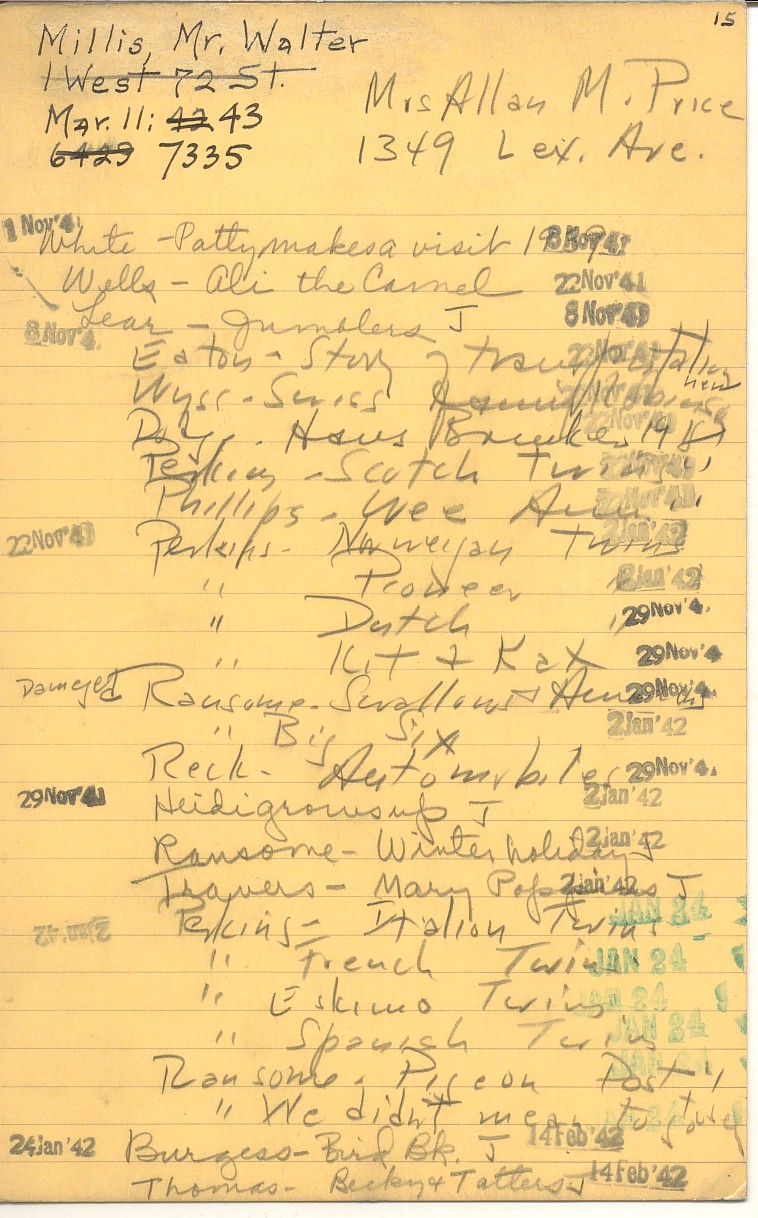 15
Millis, Mr. Walter
1 West 72 St.
Mar. 11: 42 43
6429 7335
Mrs Allan M. Price
1349 Lex. Ave.
1 Nov '41
White - Patty makes a visit 8 Nov '41
Wells - Ali the Camel 22 Nov '41
Lear - Jumblers J 8 Nov '41
8 Nov '4
Eaton - Story of transportation 22 Nov '41
Wyss - Swiss Family Robinson new
Dodge - Hans Brinker 1918
Perkins - Scotch Twins
Phillips - Wee Ann 22 Nov '41
22 Nov '41 Perkins - Norwegian Twins 2 Jan '42
" Pioneer " 2 Jan '42
" Dutch " 29 Nov '4
" Kit & Kat 29 Nov '4
Damaged Ransome - Swallows & Amazons 29 Nov '4
" Big Six 2 Jan '42
Reck - Automobiles 29 Nov '4
29 Nov '41 Heidi grows up J 2 Jan '42
Ransome - Winter holiday J 2 Jan '42
Travers - Mary Poppins J 2 Jan '42
2 Jan '42 Perkins - Italian Twins JAN 24
" French Twins JAN 24
" Eskimo Twins JAN 24
" Spanish Twins JAN 24
Ransome - Pigeon Post JAN 24
" We didn't mean to go to sea JAN 24
24 Jan '42 Burgess - Bird Bk. J 14 Feb '42
Thomas - Becky & Tatters J 14 Feb '42